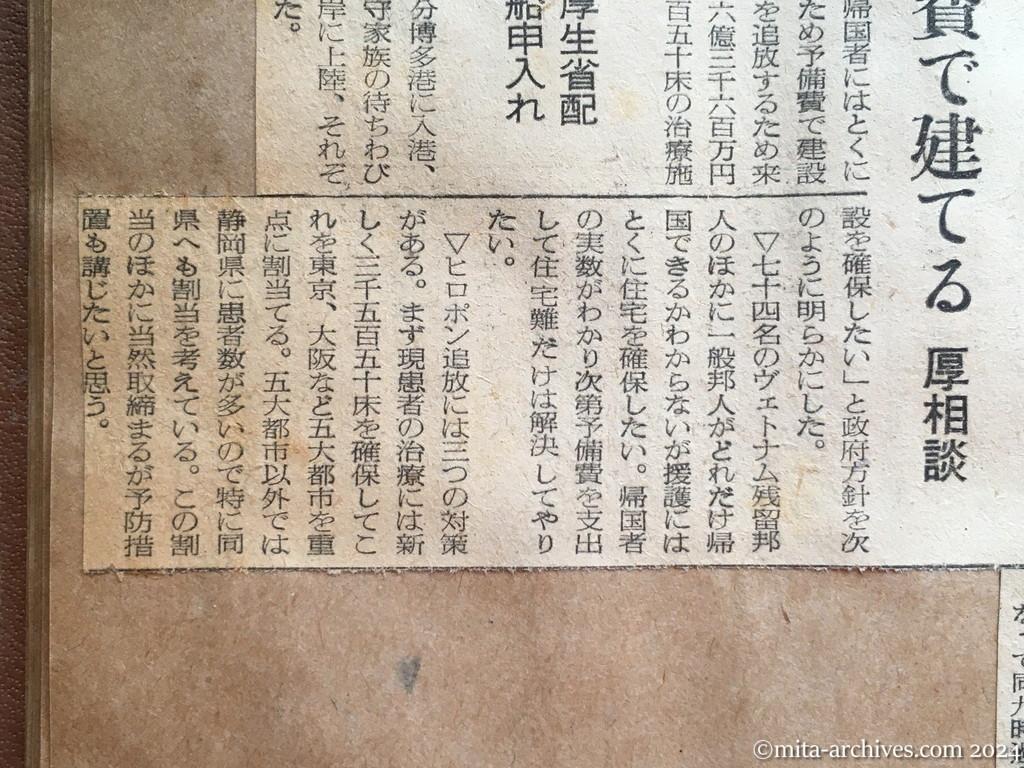 費で建てる 厚相談
帰国者にはとくに
ため予備費で建設
を追放するため来
六億三千六百万円
百五十床の治療施
設を確保したい」と政府方針を次
のように明らかにした。
▽七十四名のヴェトナム残留邦
人のほかに一般邦人がどれだけ帰
国できるかわからないが援護には
とくに住宅を確保したい。帰国者
の実数がわかり次第予備費を支出
して住宅難だけは解決してやり
たい。
▽ヒロポン追放には三つの対策
がある。まず現患者の治療には新
しく三千五百五十床を確保してこ
れを東京、大阪など五大都市を重
点に割当てる。五大都市以外では
静岡県に患者数が多いので特に同
県へも割当を考えている。この割
当のほかに当然取締まるが予防措
置も講じたいと思う。
厚生省配
船申入れ
分博多港に入港、
守家族の待ちわび
岸に上陸、それぞ
た。
©mita-archives.com 2024